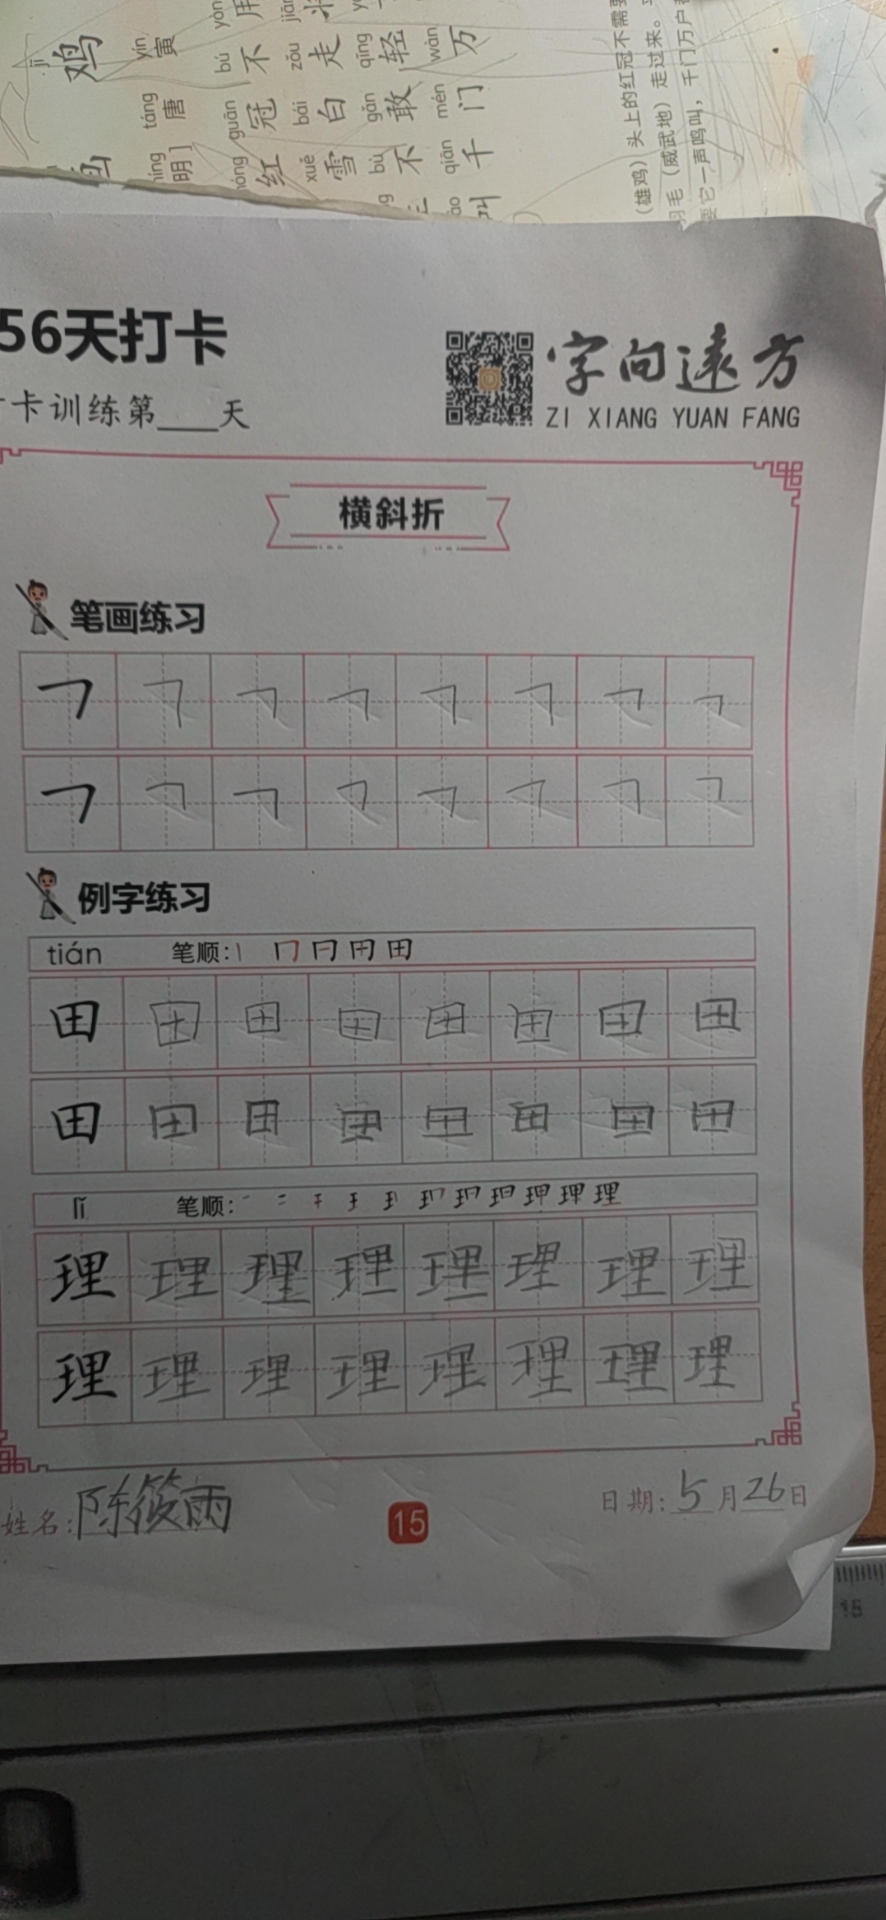 鸡
jī
寅
yín
唐
táng
明]
红冠不用
guān bú yòng
雪白走
xuě bái zǒu
不敢轻
bù gǎn qīng
叫千门万
qiān mén wàn
（雄鸡）头上的红冠不需
羽毛（威武地）走过来。
要它一声鸣叫，千门万户
56天打卡
卡训练第____天
字向远方
ZI XIANG YUAN FANG
横斜折
笔画练习
例字练习
tián 笔顺:丨 冂 日 田 田
田 田 田 田 田 田 田 田
田 田 田 田 田 田 田 田
lǐ 笔顺:
理 理 理 理 理 理 理 理
理 理 理 理 理 理 理 理
姓名:陈筱雨
15
日期:5月26日
15